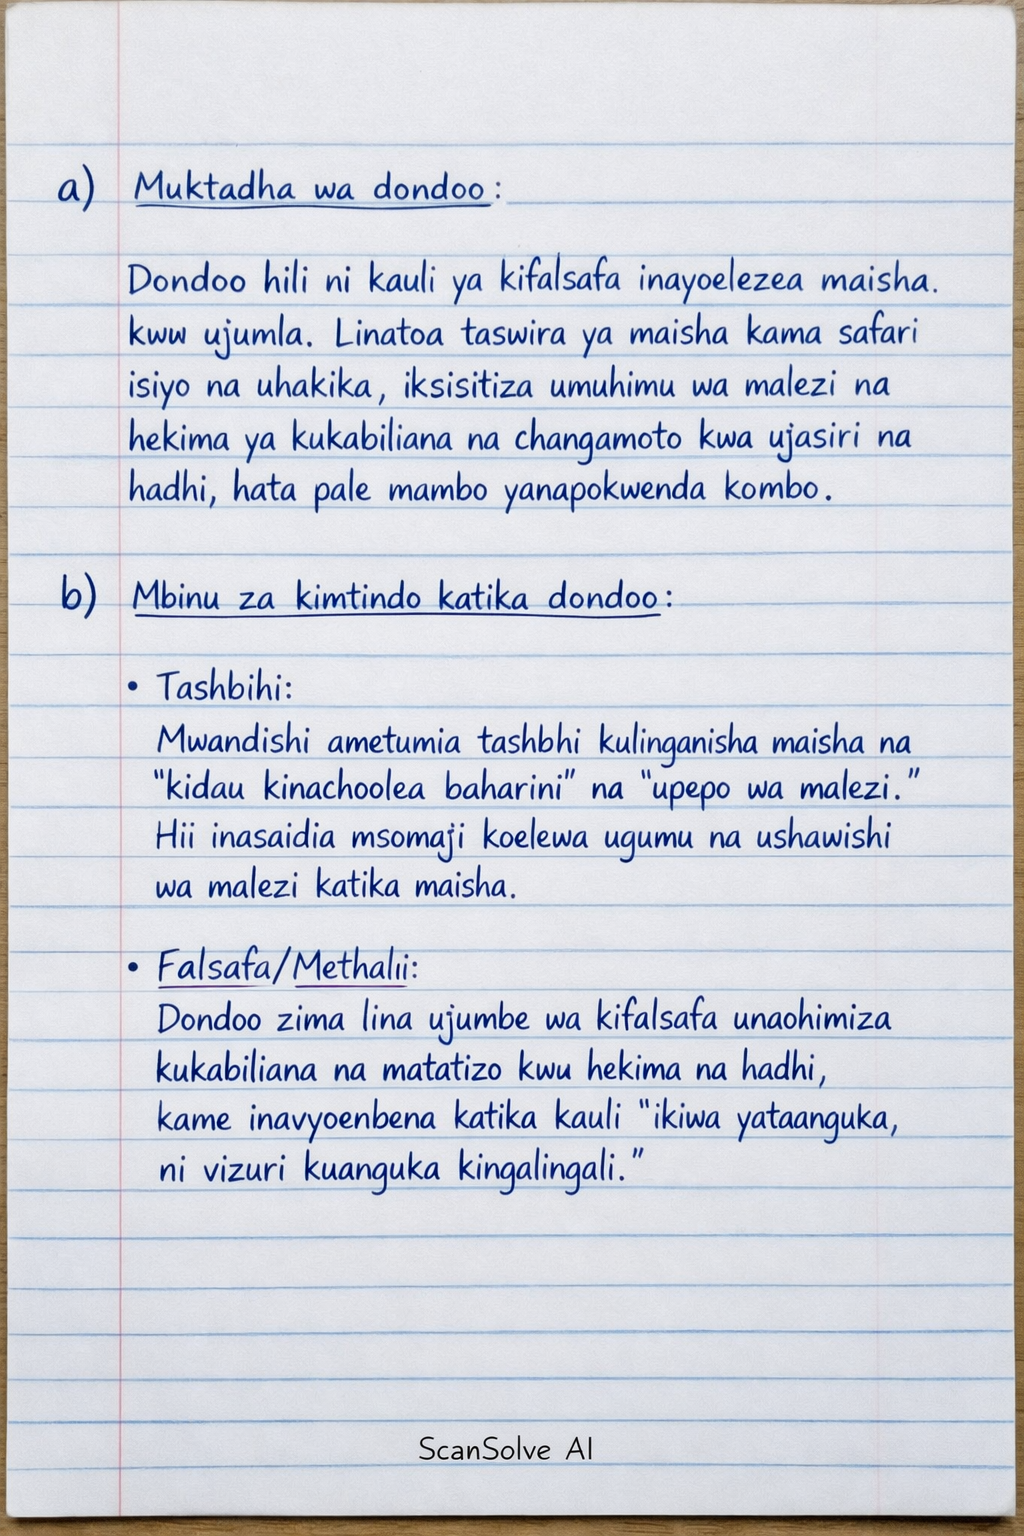 a) Muktadha wa dondoo:
Dondoo hili ni kauli ya kifalsafa inayoelezea maisha.
kww ujumla. Linatoa taswira ya maisha kama safari
isiyo na uhakika, iksisitiza umuhimu wa malezi na
hekima ya kukabiliana na changamoto kwa ujasiri na
hadhi, hata pale mambo yanapokwenda kombo.
b) Mbinu za kimtindo katika dondoo:
• Tashbihi:
Mwandishi ametumia tashbhi kulinganisha maisha na
"kidau kinachoolea baharini" na "upepo wa malezi."
Hii inasaidia msomaji koelewa ugumu na ushawishi
wa malezi katika maisha.
• Falsafa/Methalii:
Dondoo zima lina ujumbe wa kifalsafa unaohimiza
kukabiliana na matatizo kwu hekima na hadhi,
kame inavyoenbena katika kauli "ikiwa yataanguka,
ni vizuri kuanguka kingalingali."
ScanSolve AI